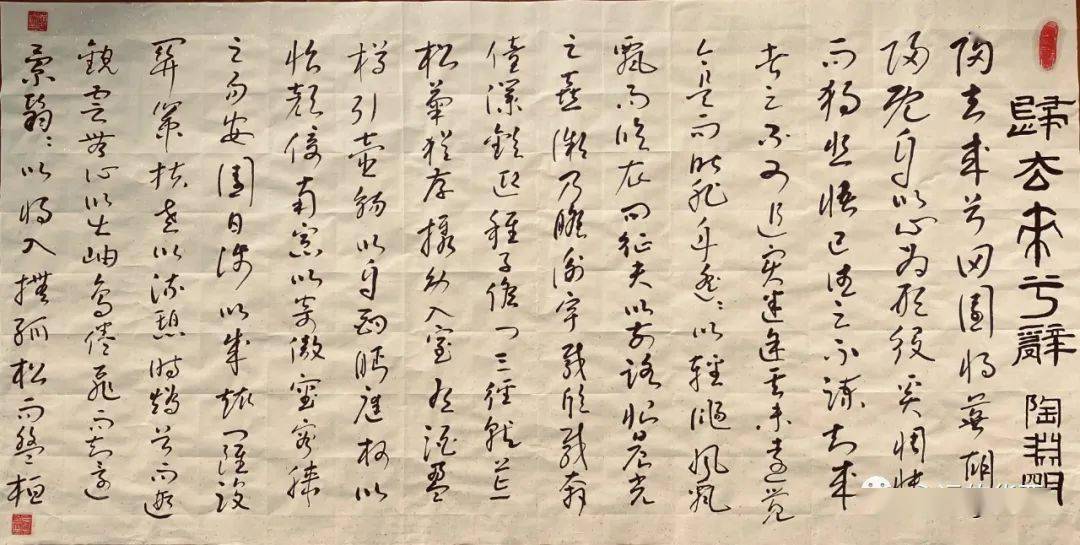 歸去来兮辭 陶淵明
归去来兮田園将蕪胡
归既自以心为形役奚惆悵
而独悲悟已往之不諫知来
者之可追实迷途其未遠觉
今是而昨非舟遥〻以輕颺風飄
飄而吹衣问征夫以前路恨晨光
之熹微乃瞻衡宇載欣載奔
僮僕歡迎稚子候门三徑就荒
松菊猶存攜幼入室有酒盈
樽引壺觴以自酌眄庭柯以
怡顏倚南窗以寄傲審容膝
之易安園日涉以成趣门雖設
關策扶老以流憩時矯首而遐
觀雲無心以出岫鳥倦飛而知還
景翳〻以将入撫孤松而盤桓